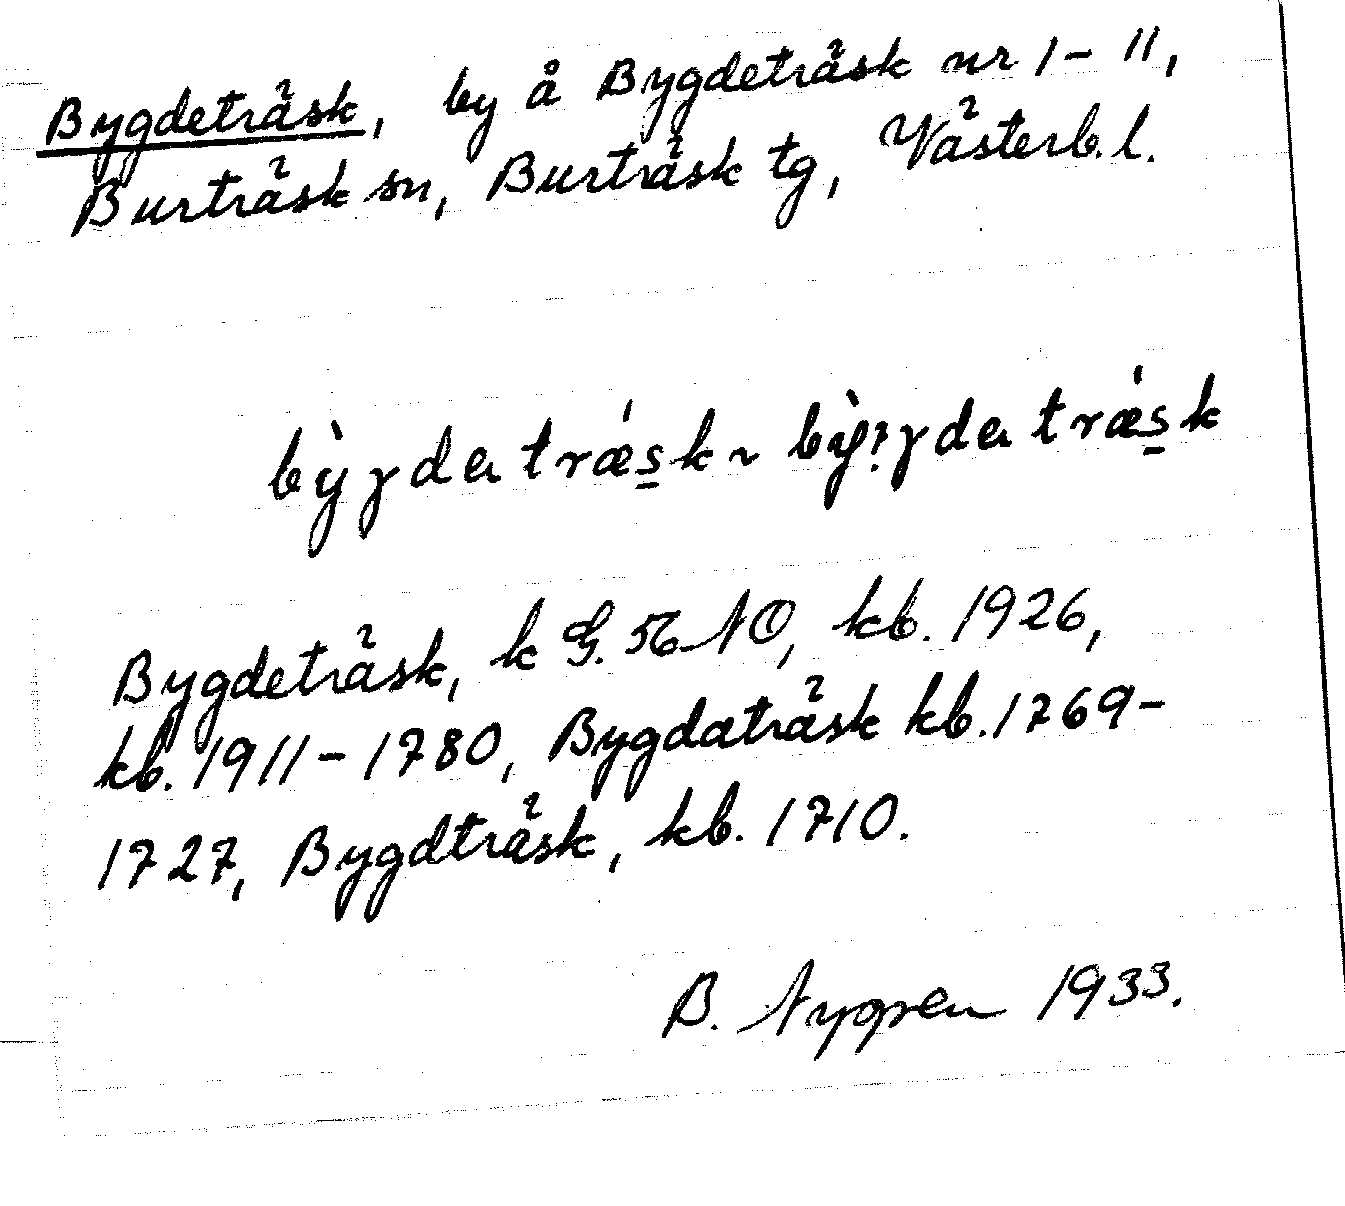 Bygdeträsk, by å Bygdeträsk nr 1-11,
Burträsk sn, Burträsk tg, Västerb. l.
bỳɣda trǽs̠k ~ bỳ?ɣda trǽs̠k
Bygdeträsk, k G. 56 NO, kb. 1926,
kb. 1911-1780, Bygdaträsk kb. 1769-
1727, Bygdträsk, kb. 1710.
B. Nygren 1933.